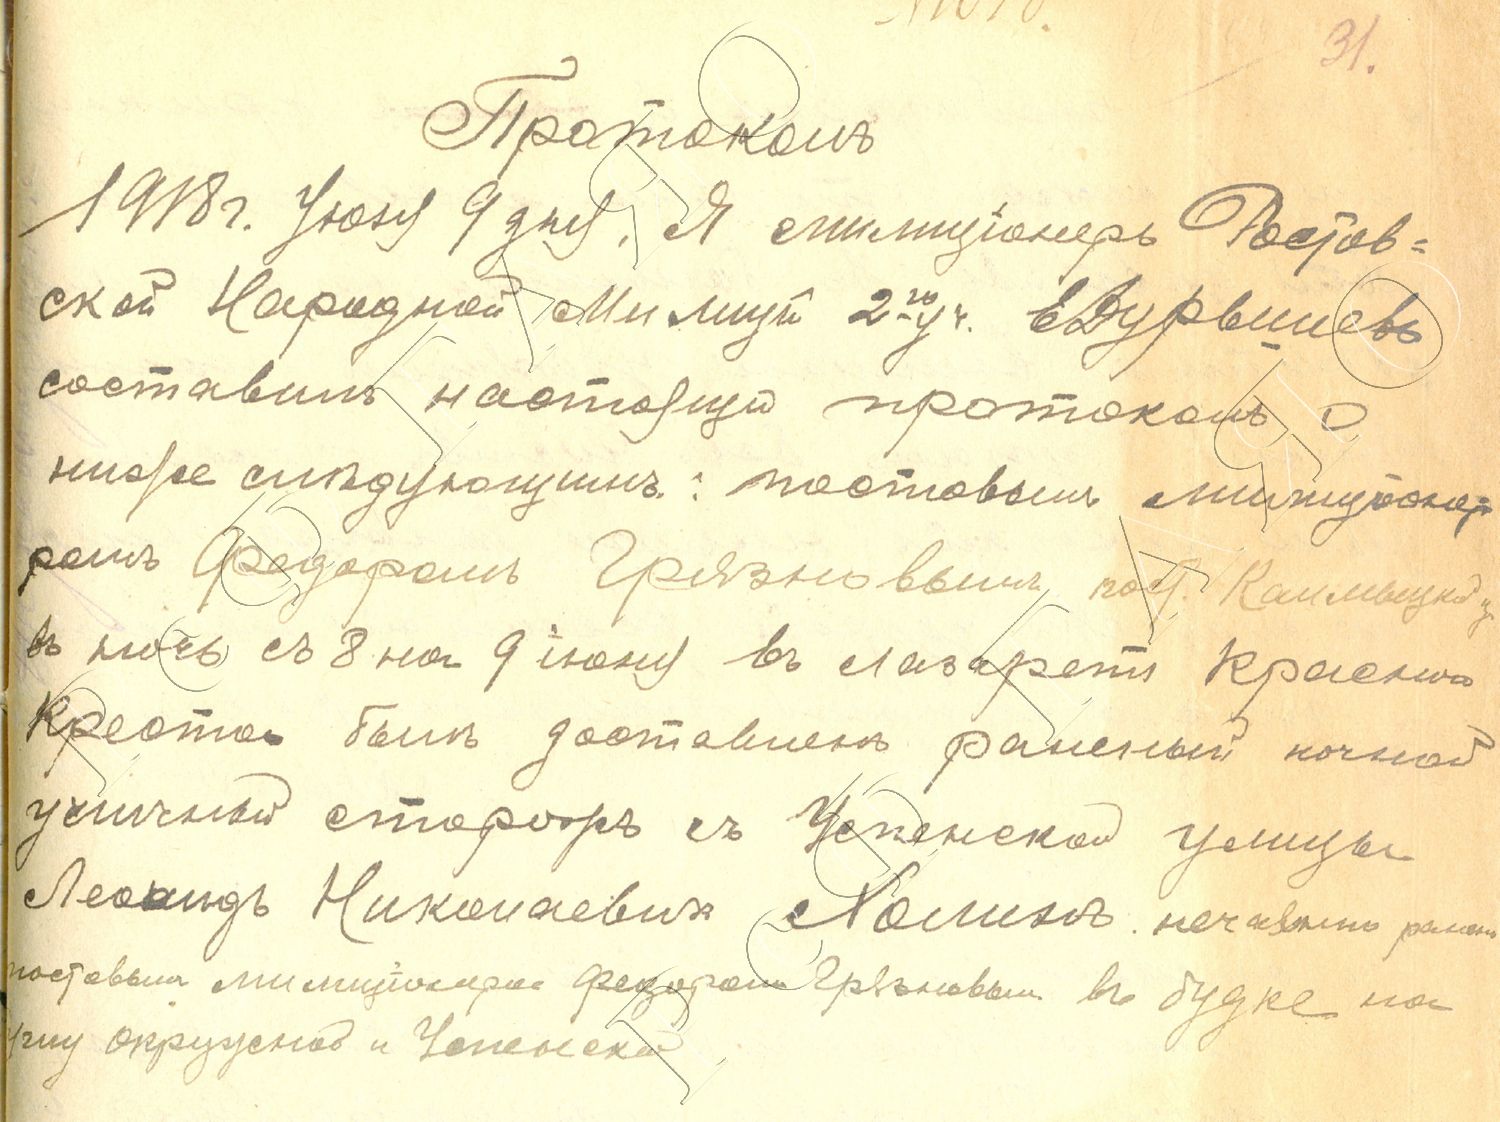 31.
Протоколъ
1918 г. Июня 9 дня. Я милиціонеръ Ростов=
ской Народной Милиціи 2го уч.
составилъ настоящій протоколъ о
ниже слѣдующимъ: постовымъ милиціоне
ромъ Федоромъ Грязновымъ пост.
въ ночь съ 8 на 9 іюня въ лазаретъ Красного
Креста былъ доставленъ раненый ночной
уличный сторожъ съ Успенской улицы
Леонидъ Николаевичъ нечаянно ранен
постовым милиціонером Федором Грязновым въ будке на
углу окружной и Успенской